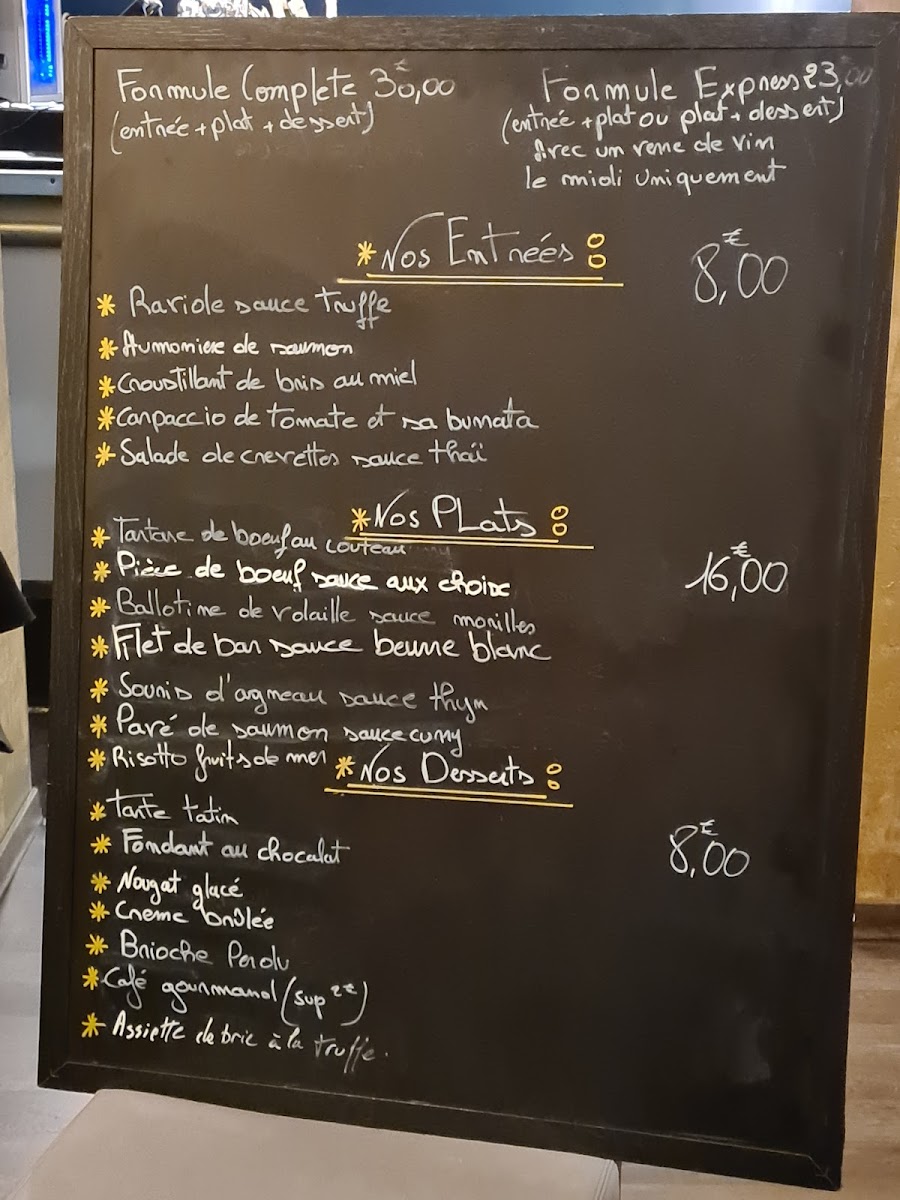 Formule Complete 30,00€
(entrée + plat + dessert)
Formule Express 23,00
(entrée + plat ou plat + dessert)
Avec un verre de vin
le midi uniquement
* Nos Entrées :
8,00€
* Raviole sauce truffe
* Aumoniere de saumon
* Croustillant de brie au miel
* Carpaccio de tomate et sa burrata
* Salade de crevettes sauce thaï
* Nos PLats :
16,00€
* Tartare de boeuf au couteau
* Pièce de boeuf sauce aux choix
* Ballotine de volaille sauce morilles
* Filet de bar sauce beurre blanc
* Souris d'agneau sauce thym
* Pavé de saumon sauce curry
* Risotto fruits de mer
* Nos Desserts :
8,00€
* Tarte tatin
* Fondant au chocolat
* Nougat glacé
* Creme brûlée
* Brioche Perdu
* Café gourmand (sup 2€)
* Assiette de brie à la truffe.